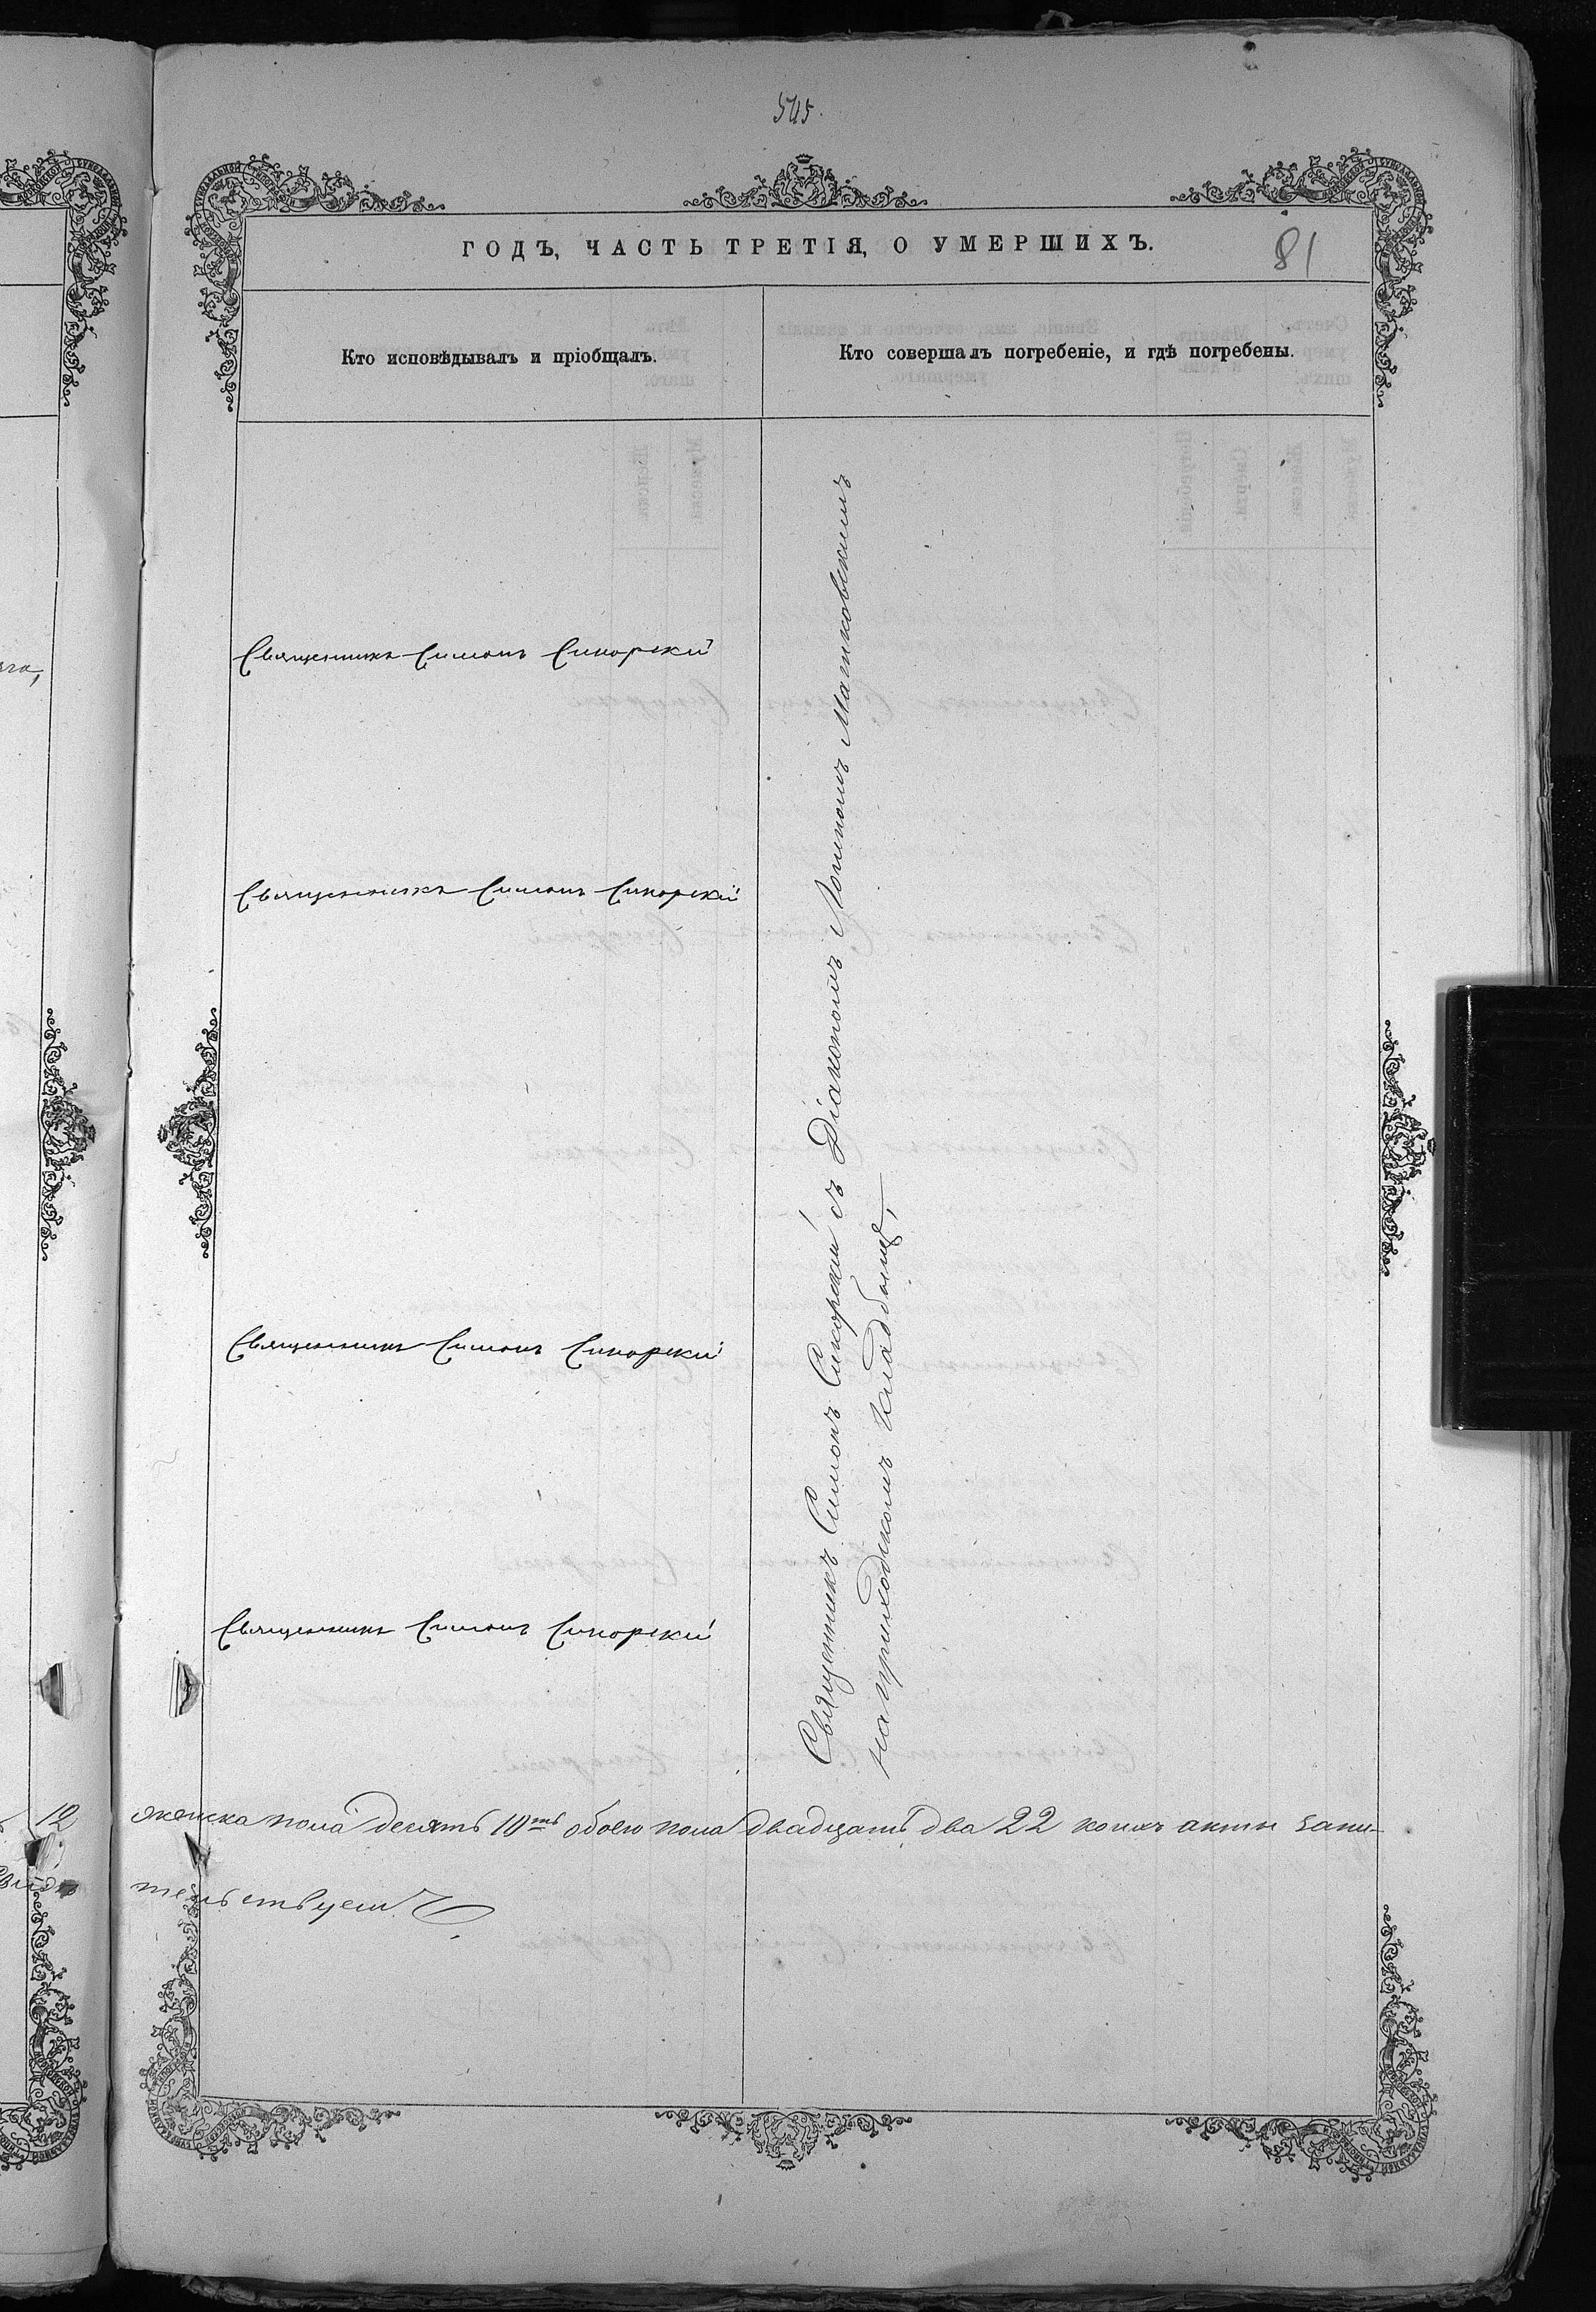 545.
ГОДЪ, ЧАСТЬ ТРЕТІЯ, О УМЕРШИХЪ.
81
Кто исповѣдывалъ и пріобщалъ.
Кто совершалъ погребеніе, и гдѣ погребены.
Священникъ Симонъ Сикорскій
Священникъ Симонъ Сикорскій
Священникъ Симонъ Сикорскій
Священникъ Симонъ Сикорскій
Священникъ Симонъ Сикорскій съ Діакономъ Матковскимъ
на приходскомъ кладбищѣ,
12 женска пола десять 10ть обоего пола двадцать два 22 коихъ акты запи-
тельствуем.